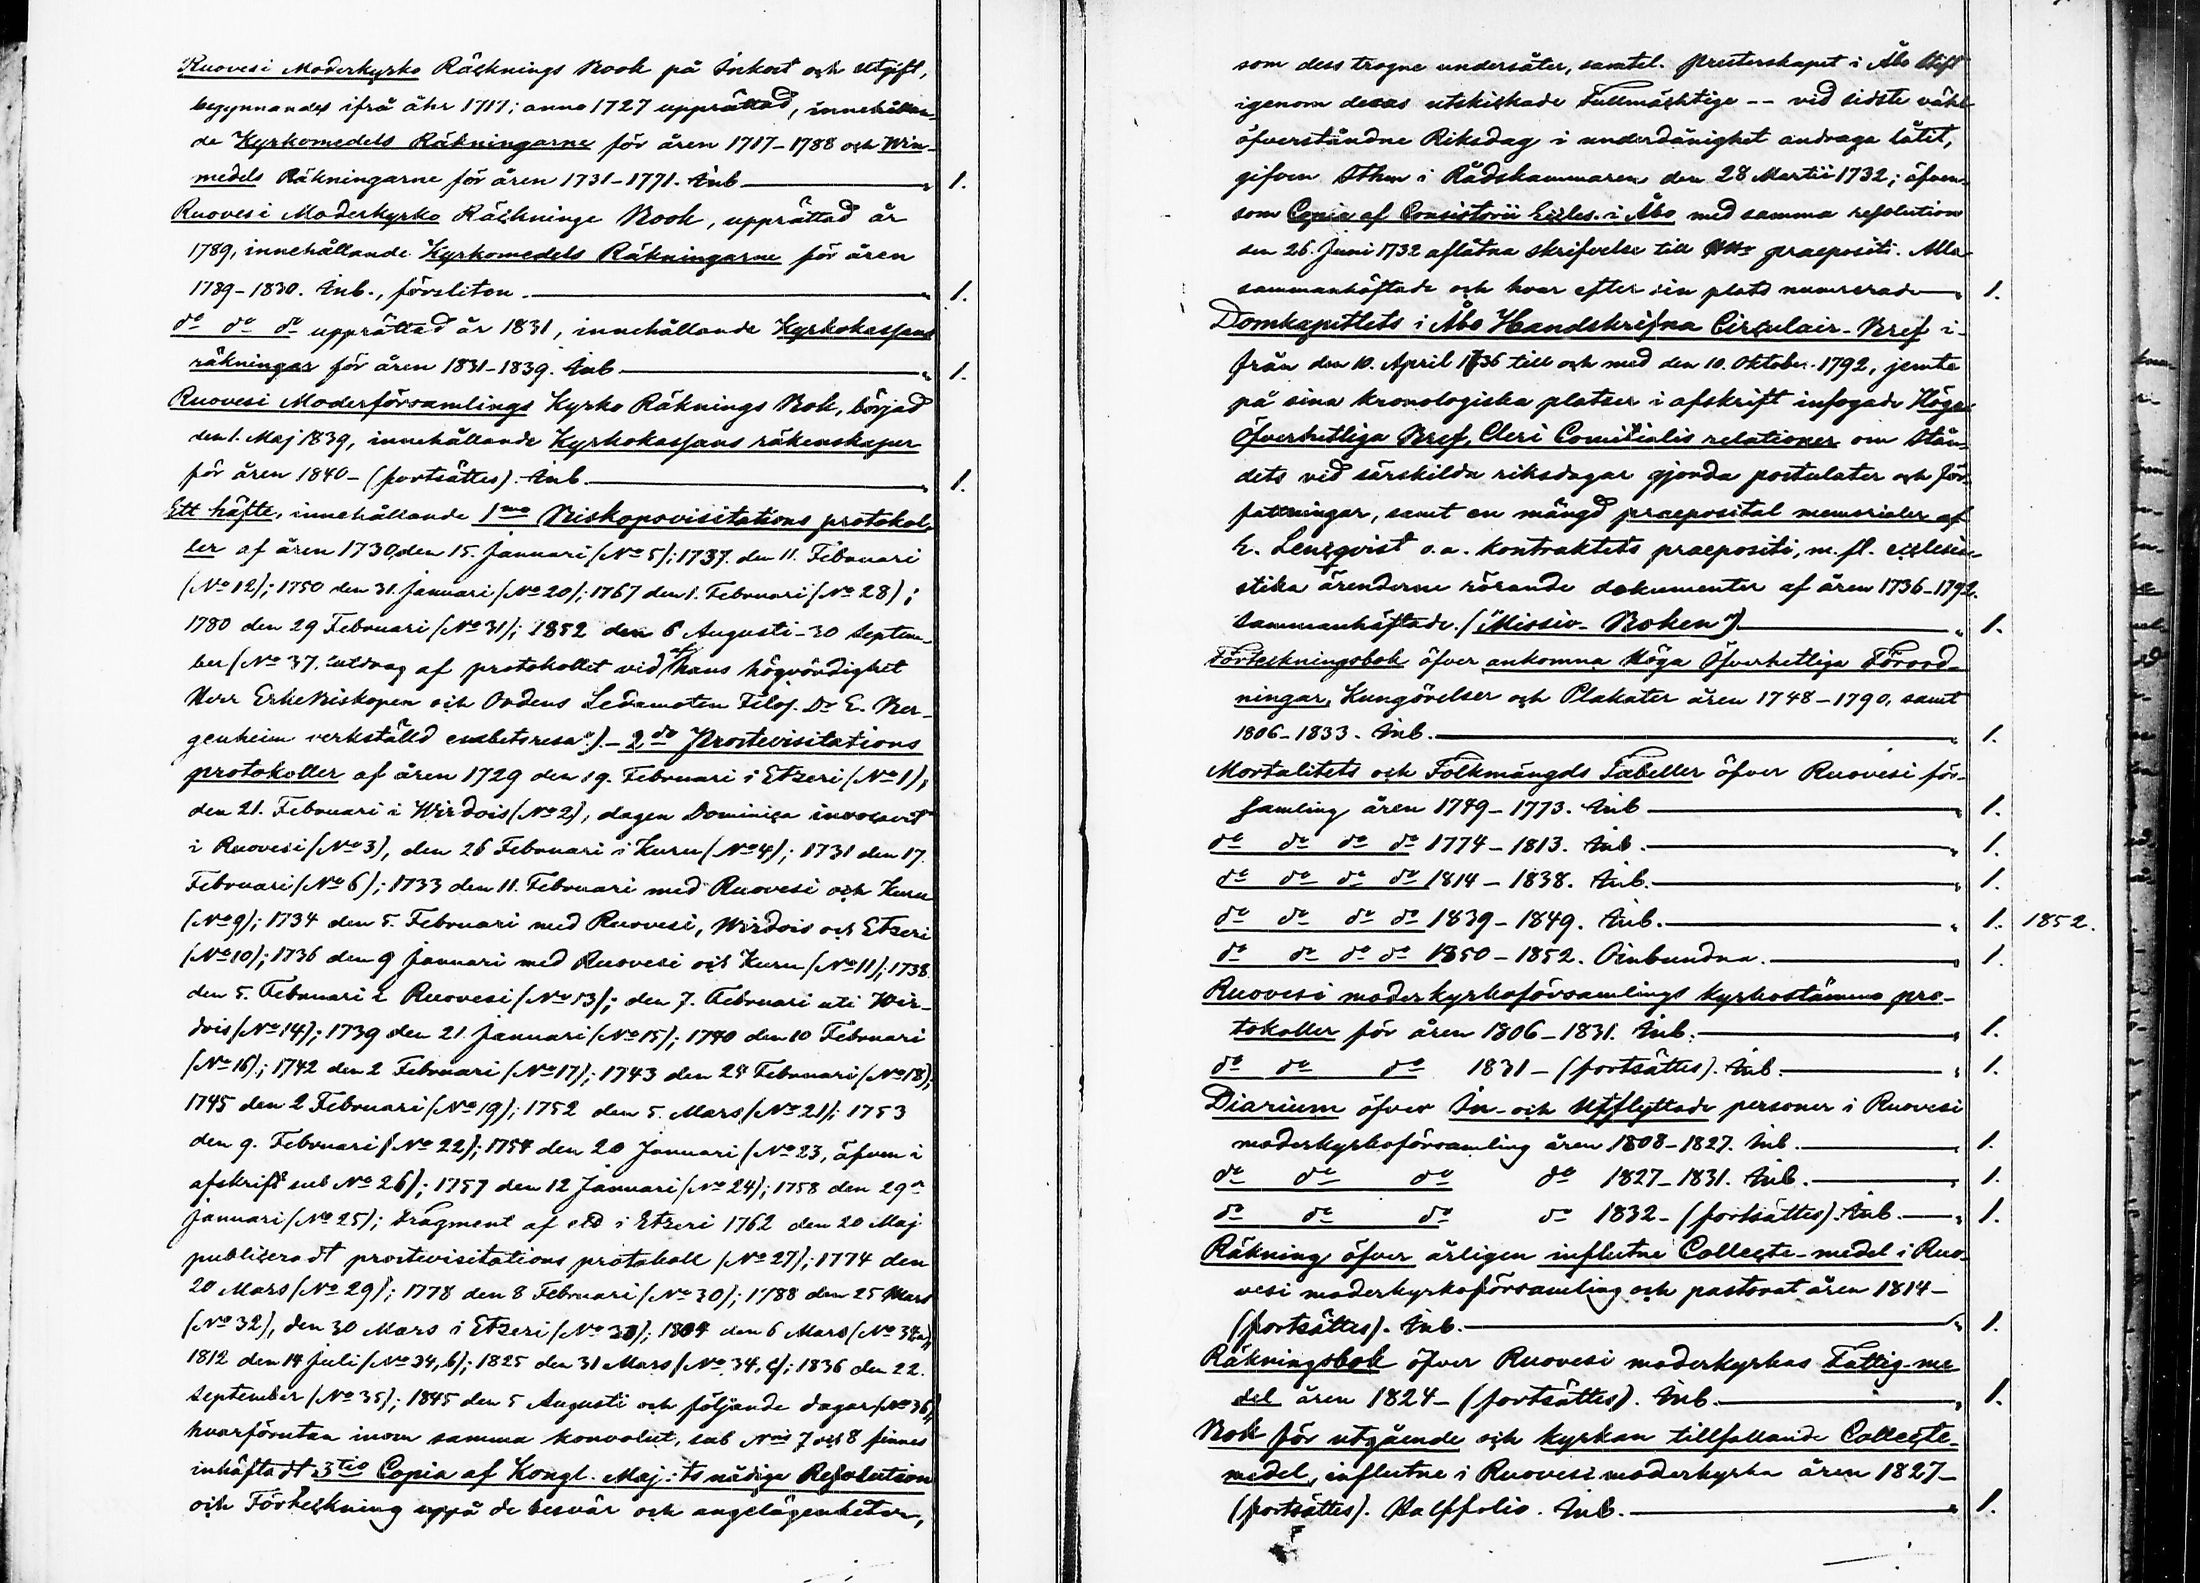 Ruovesi Moderkyrko Räcknings Book på Inkost och Utgift,
begynnandes ifrå åhr 1717; anno 1727 upprättad, innehållan-
de Kyrkomedels Räkningarne för åren 1717-1788 och Win-
medels Räkningarne för åren 1731-1771. Inb — „ 1.
Ruovesi Moderkyrko Räcknings Book, upprättad år
1789, innehållande Kyrkomedels Räkningarne för åren
1789-1830. Inb., försliten. — „ 1.
do do do upprättad år 1831, innehållande Kyrkokassans
räkningar för åren 1831-1839. Inb — „ 1.
Ruovesi Moderförsamlings Kyrko Räknings Bok, börjad
den 1. Maj 1839, innehållande Kyrkokassans räkenskaper
för åren 1840- (fortsättes). Inb. — „ 1.
Ett häfte, innehållande 1mo Biskopsvisitations protokol-
ler af åren 1730, den 15. Januari (No 5); 1737. den 11. Februari
(No 12); 1750 den 31. Januari (No 20); 1767 den 1. Februari (No 28);
1780 den 29 Februari (No 31); 1852 den 6 Augusti-30 Septem-
ber (No 37. "utdrag af protokollet vid af hans högvördighet
Herr ErkeBiskopen och Ordens Ledamoten Filos. Dr E. Ber-
genheim verkställd embetsresa".) - 2do Prostevisitations
protokoller af åren 1729 den 19. Februari i Etseri (No 1),
den 21. Februari i Wirdois (No 2), dagen Dominica invocavit
i Ruovesi (No 3), den 26 Februari i Kuru (No 4); 1731 den 17.
Februari (No 6); 1733 den 11. Februari med Ruovesi och Kuru
(No 9); 1734 den 5. Februari med Ruovesi, Wirdois och Etseri
(No 10); 1736 den 9 Januari med Ruovesi och Kuru (No 11); 1738.
den 5. Februari i Ruovesi (No 13); den 7. Februari uti Wir-
dois (No 14); 1739 den 21. Januari (No 15); 1740 den 10 Februari
(No 16); 1742 den 2 Februari (No 17); 1743 den 28 Februari (No 18);
1745 den 2 Februari (No 19); 1752 den 5. Mars (No 21); 1753
den 9. Februari (No 22); 1754 den 20 Januari (No 23, äfven i
afskrift sub No 26); 1757 den 12 Januari (No 24); 1758 den 29
Januari (No 25); Fragment af ett i Etseri 1762 den 20 Maj
publiceradt prostevisitations protokoll (No 27); 1774 den
20 Mars (No 29); 1778 den 8 Februari (No 30); 1788 den 25 Mars
(No 32), den 30 Mars i Etseri (No 33); 1804 den 6 Mars (No 34a),
1812 den 14 Juli (No 34, b); 1825 den 31 Mars (No 34, c); 1836 den 22.
September (No 35); 1845 den 5 Augusti och följande dagar (No 36),
hvarförutan inom samma konvolut, sub Nis 7 och 8 finnes
inhäftadt 3tio Copia af Kongl. Maj:ts nådige Resolution
och Förteckning uppå de besvär och angelägenheter,
som dess trogne undersåter, samtel. Presterskapet i Åbo Stift
igenom desas utskickade Fullmäcktige -- vid sidste vähl
öfverståndne Riksdag i underdånighet andraga låtit,
gifven Sthm i Rådskammaren den 28 Martii 1732; äfven-
som Copia af Consistorii Eccles. i Åbo med samma resolution
den 26. Juni 1732 aflåtna skrifvelse till praepositi. Alla
sammanhäftade och hvar efter sin plats numrerade — „ 1.
Domkapitlets i Åbo Handskrifna Circulair-Bref i-
från den 10. April 1736 till och med den 10. Oktober 1792, jemte
på sina kronologiska platser i afskrift infogade Höga
Öfverhetliga Bref, Cleri Comitialis relationer om Stån-
dets vid särskilda riksdagar gjorda postulater och för-
fattningar, samt en mängd praeposital memorialer af
E. Lencqvist o.a. kontraktets praepositi, m. fl. ecclesia-
stika ärenderne rörande dokumenter af åren 1736-1792.
Sammanhäftade. ("Missiv-Boken") — „ 1.
Förteckningsbok öfver ankomna Höga Öfverhetliga Förord-
ningar, Kungörelser och Plakater åren 1748-1790, samt
1806-1833. Inb. — „ 1.
Mortalitets och Folkmängds Tabeller öfver Ruovesi för-
samling åren 1749-1773. Inb — „ 1.
do do do do 1774-1813. Inb. — „ 1.
do do do do 1814-1838. Inb. — „ 1.
do do do do 1839-1849. Inb. — „ 1. 1852.
do do do do 1850-1852. Oinbundna. — „ 1.
Ruovesi moderkyrkoförsamlings kyrkostämmo pro-
tokoller för åren 1806-1831. Inb. — „ 1.
do do do 1831-(fortsättes). Inb. — „ 1.
Diarium öfver In- och Utflyttade personer i Ruovesi
moderkyrkoförsamling åren 1808-1827. Inb — 1.
do do do do 1827-1831. Inb. — „ 1.
do do do do 1832-(fortsättes). Inb. — „ 1.
Räkning öfver årligen influtne Collecte-medel i Ruo-
vesi moderkyrkoförsamling och pastorat åren 1814-
(fortsättes). Inb. — „ 1.
Räkningsbok öfver Ruovesi moderkyrkas Fattig-me-
del åren 1824-(fortsättes). Inb. — „ 1.
Bok för utgående och kyrkan tillfallande Collecte-
medel, influtne i Ruovesi moderkyrka åren 1827-
(fortsättes). Halffolio. Inb. — „ 1.